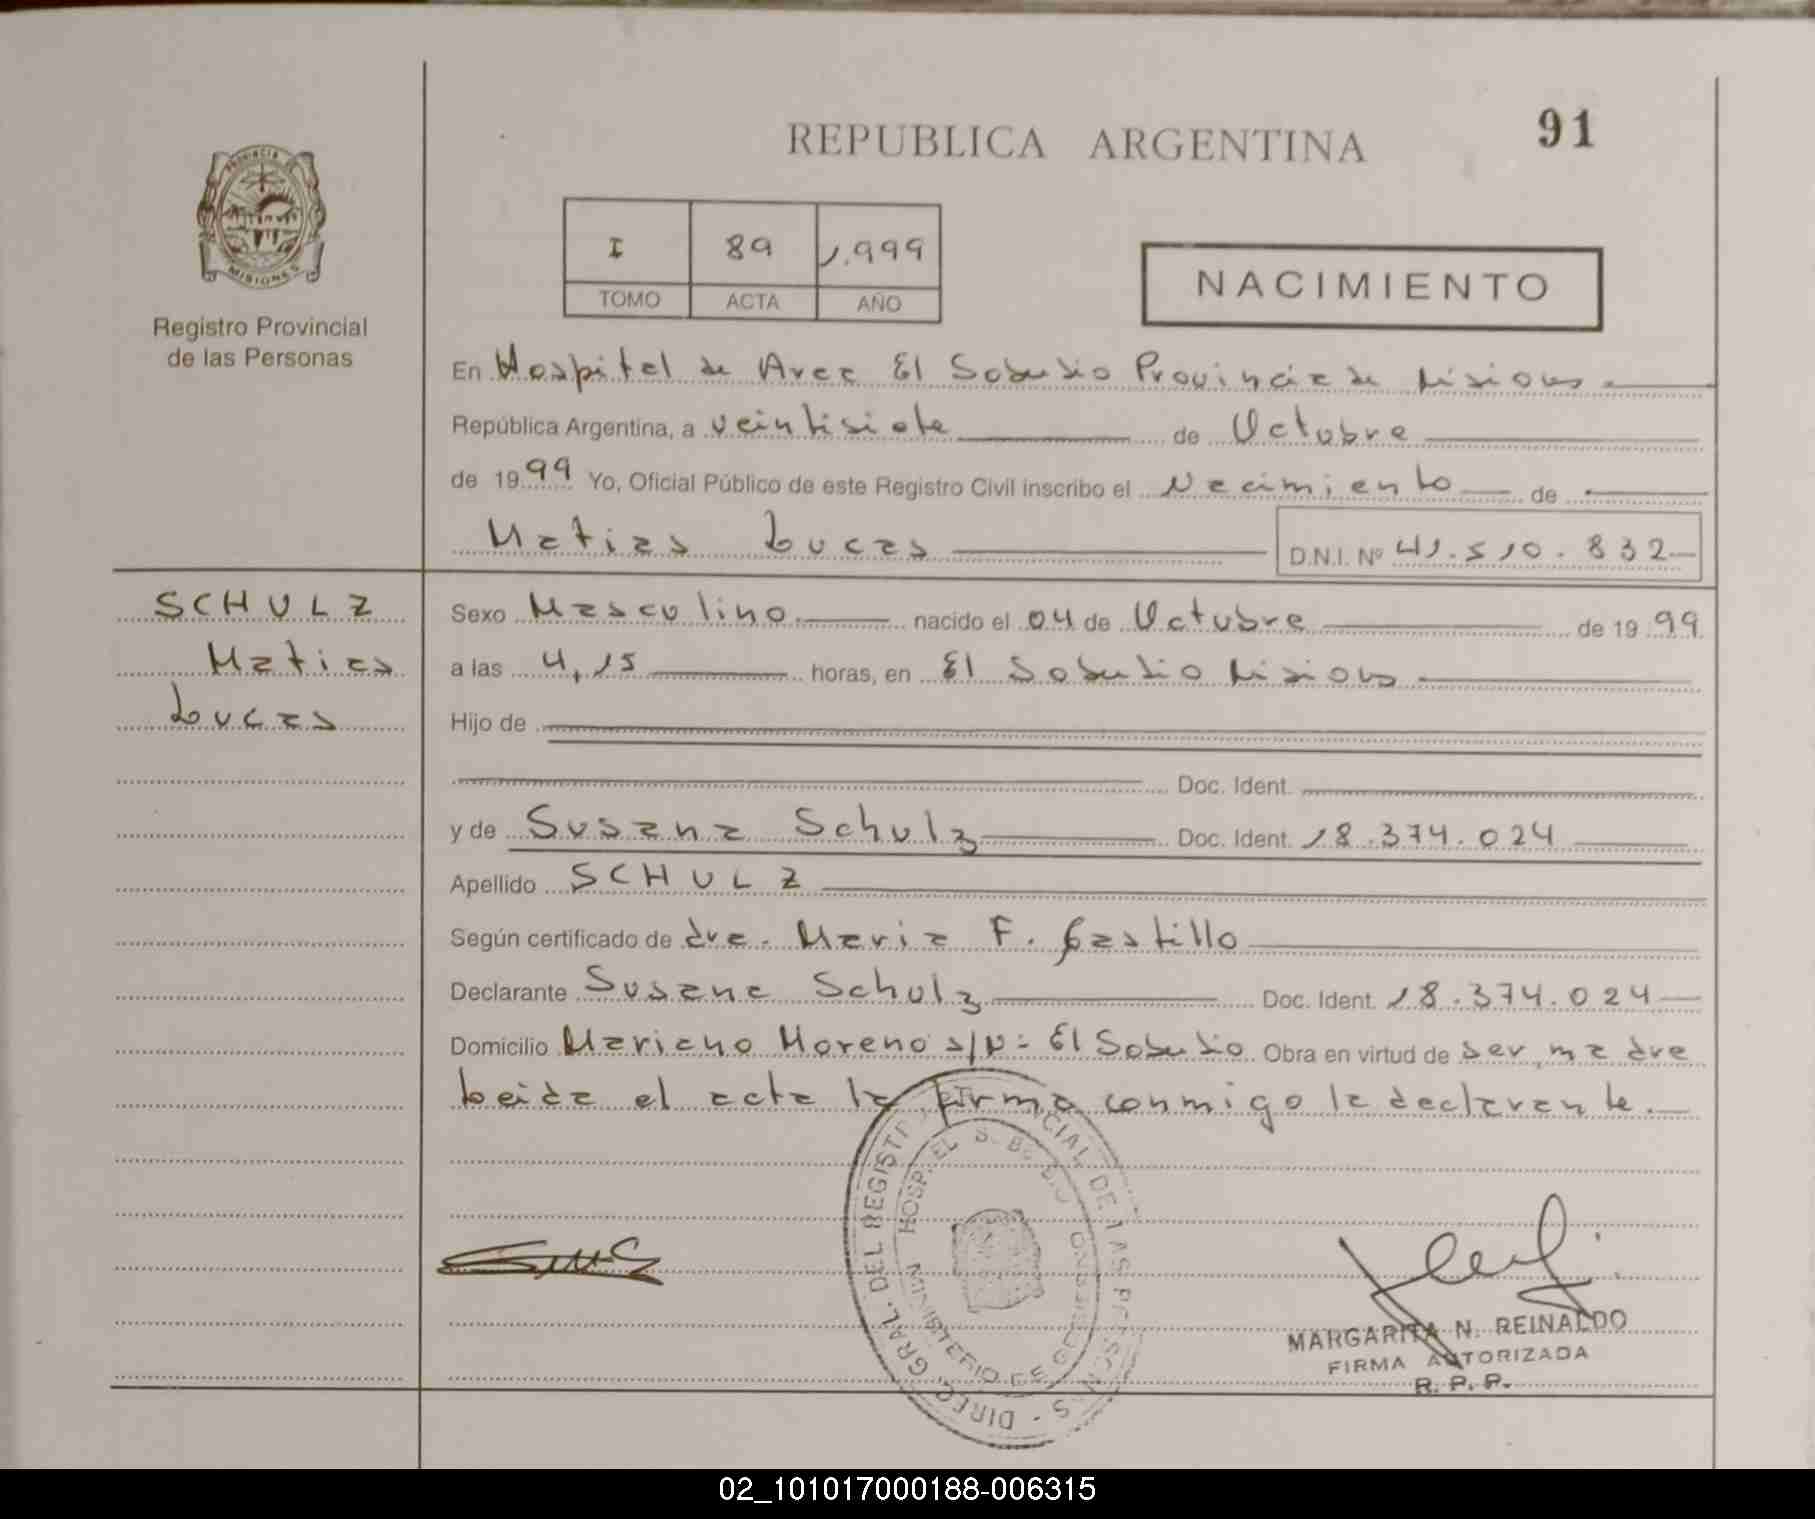 91
REPUBLICA ARGENTINA
PROVINCIA
MISIONES
Registro Provincial
de las Personas
I 89 1.999
TOMO ACTA AÑO
NACIMIENTO
En Hospital de Area El Soberbio Provincia de Misiones
República Argentina, a veintisiete de Octubre
de 1999 Yo, Oficial Público de este Registro Civil inscribo el Nacimiento de
Matias Lucas D.N.I. Nº 41.510.832
SCHULZ
Matias
Lucas
Sexo Masculino nacido el 04 de Octubre de 1999
a las 4,15 horas, en El Soberbio Misiones
Hijo de
Doc. Ident.
y de Susana Schulz Doc. Ident. 18.374.024
Apellido SCHULZ
Según certificado de dra. Maria F. Castillo
Declarante Susana Schulz Doc. Ident. 18.374.024
Domicilio Mariano Moreno s/Nº El Soberbio Obra en virtud de ser madre
Leida el acta la firma conmigo la declarante.
DIREC. GRAL. DEL REGISTRO PROVINCIAL DE LAS PERSONAS
HOSP. EL SOBERBIO
MINISTERIO DE GOBIERNO
MARGARITA N. REINALDO
FIRMA AUTORIZADA
R. P. P.
02_101017000188-006315